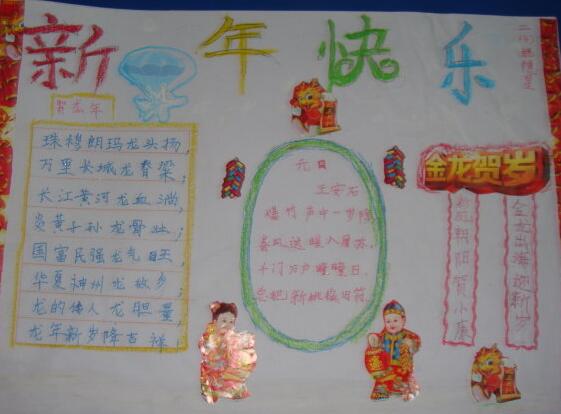 新年快乐
贺龙年
珠穆朗玛龙头扬,
万里长城龙脊梁,
长江黄河龙血淌,
炎黄子孙龙骨壮;
国富民强龙气旺,
华夏神州龙故乡;
龙的传人龙胆量,
龙年新岁降吉祥;
元日
王安石
爆竹声中一岁除
春风送暖入屠苏.
千门万户曈曈日.
总把新桃换旧符.
金龙贺岁
金龙出海迎新岁
朝阳贺小康